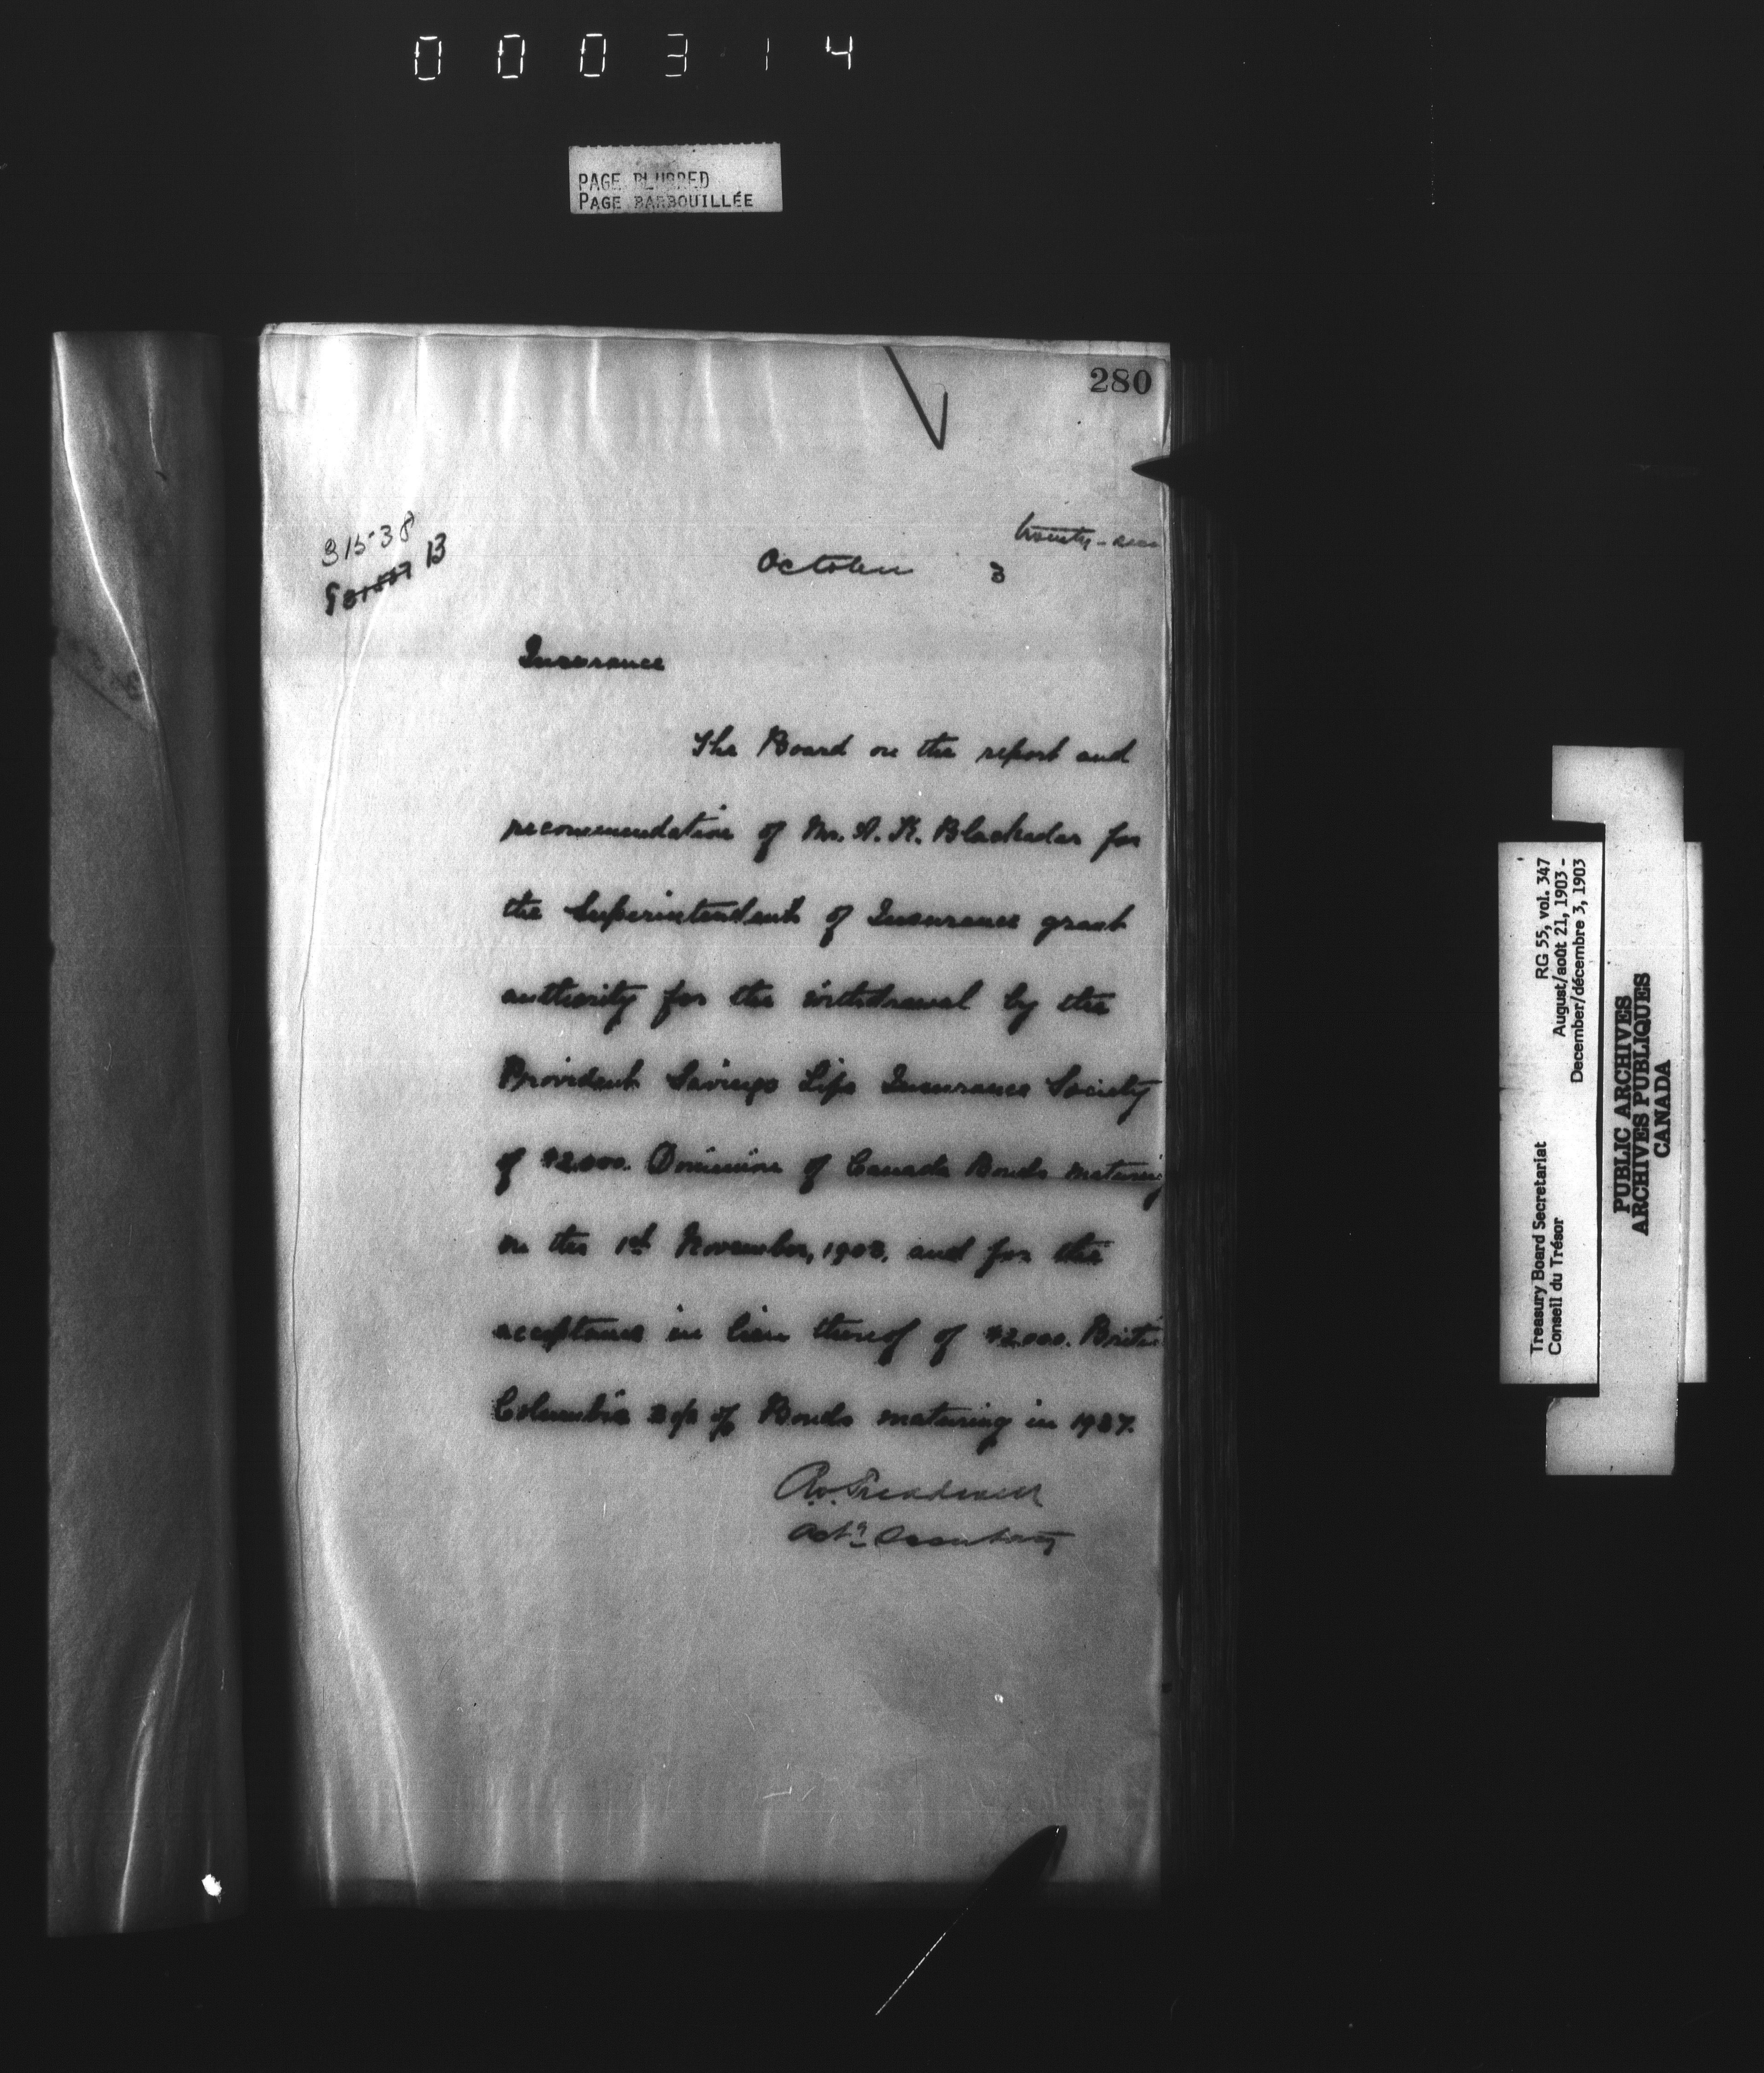 000314
PAGE BLURRED
PAGE BARBOUILLÉE
280
31538
B
twenty-
October 3
Insurance
The Board on the report and
recommendation of Mr. A. K. Blackadar for
the Superintendent of Insurance grant
authority for the withdrawal by the
Provident Savings Life Insurance Society
of $2.000. Dominion of Canada Bonds maturing
on the 1st November, 1903, and for the
acceptance in lieu thereof of $2.000. British
Columbia of Bonds maturing in 1937.
Actg Secretary
Treasury Board Secretariat RG 55, vol. 347
Conseil du Trésor August/août 21, 1903 -
December/décembre 3, 1903
PUBLIC ARCHIVES
ARCHIVES PUBLIQUES
CANADA